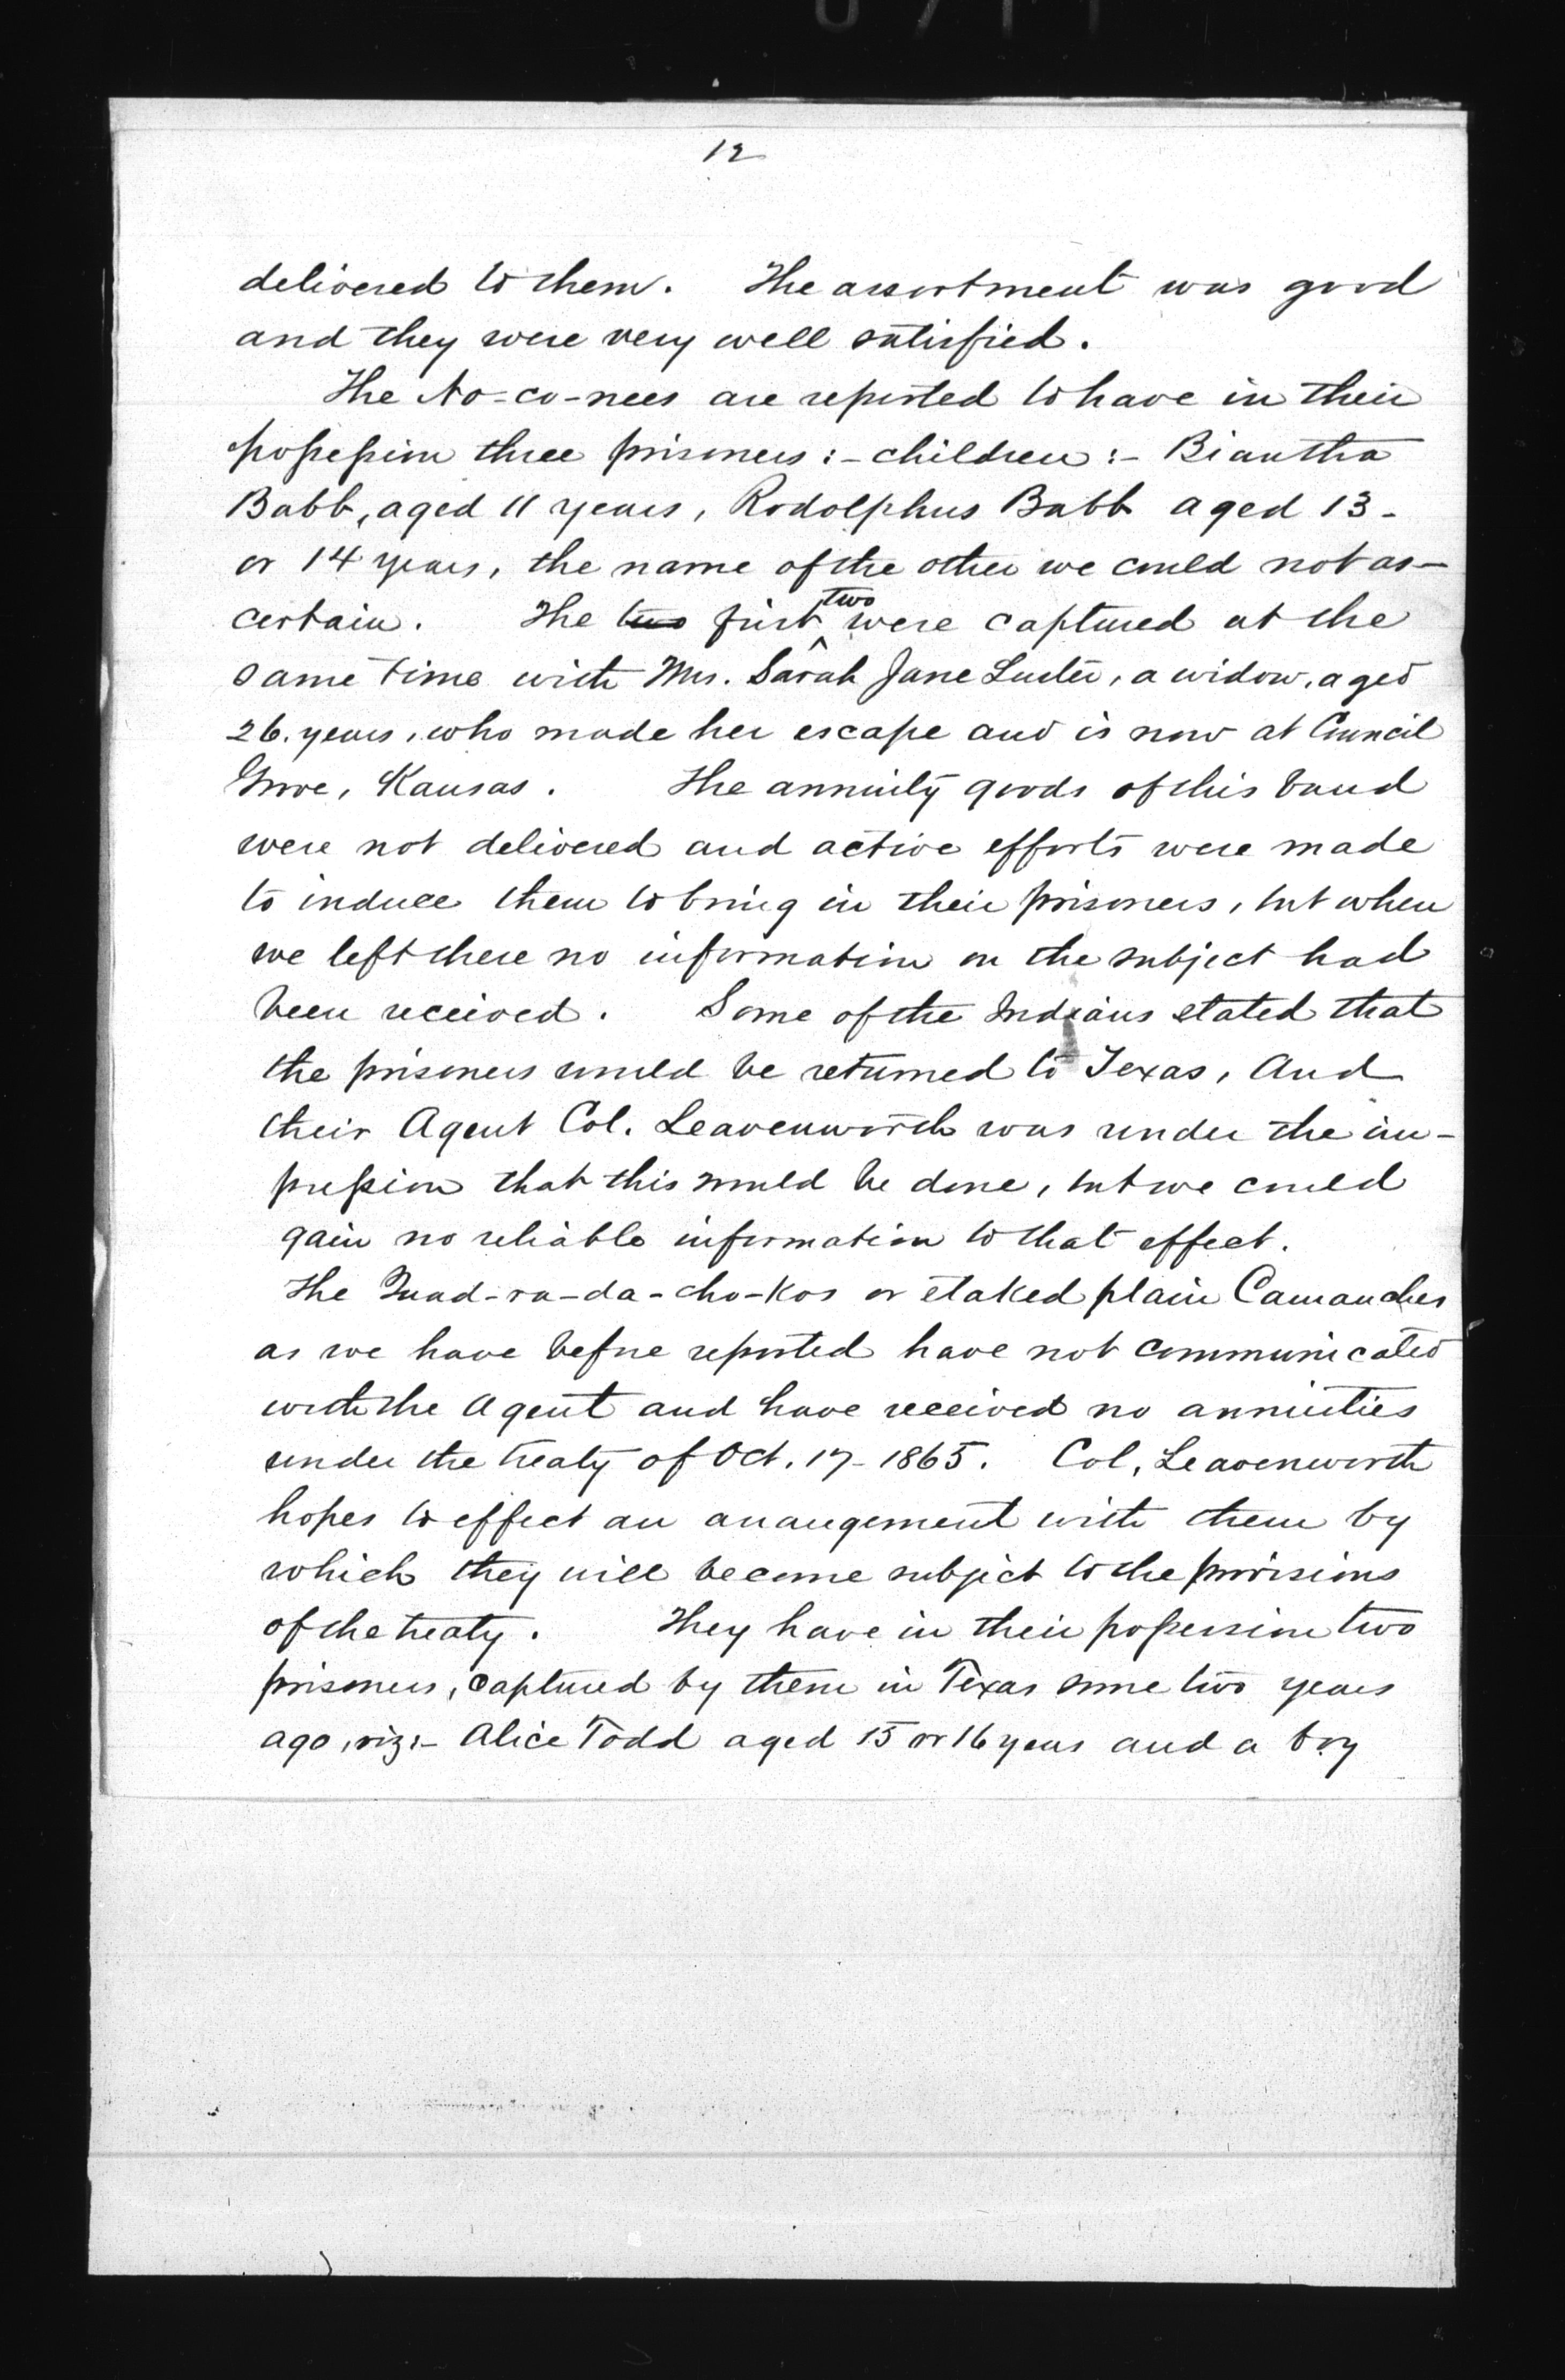 12
delivered to them. The assortment was good
and they were very well satisfied.
The No-co-nees are reported to have in their
possession three prisoners :- children :- Biantha
Babb, aged 11 years, Rodolphus Babb aged 13-
or 14 years, the name of the other we could not as-
certain. The two first two were captured at the
same time with Mrs. Sarah Jane Luster, a widow, aged
26. years, who made her escape and is now at Council
Grove, Kansas. The annuity goods of this band
were not delivered and active efforts were made
to induce them to bring in their prisoners, but when
we left there no information on the subject had
been received. Some of the Indians stated that
the prisoners would be returned to Texas, And
their Agent Col. Leavenworth was under the im-
pression that this would be done, but we could
gain no reliable information to that effect.
The Quad-ra-da-cho-kos or staked plain Camanches
as we have before reported have not communicated
with the Agent and have received no annuities
under the treaty of Oct. 17- 1865. Col. Leavenworth
hopes to effect an arrangement with them by
which they will become subject to the provisions
of the treaty. They have in their possession two
prisoners, captured by them in Texas some two years
ago, viz:- Alice Todd aged 15 or 16 years and a boy